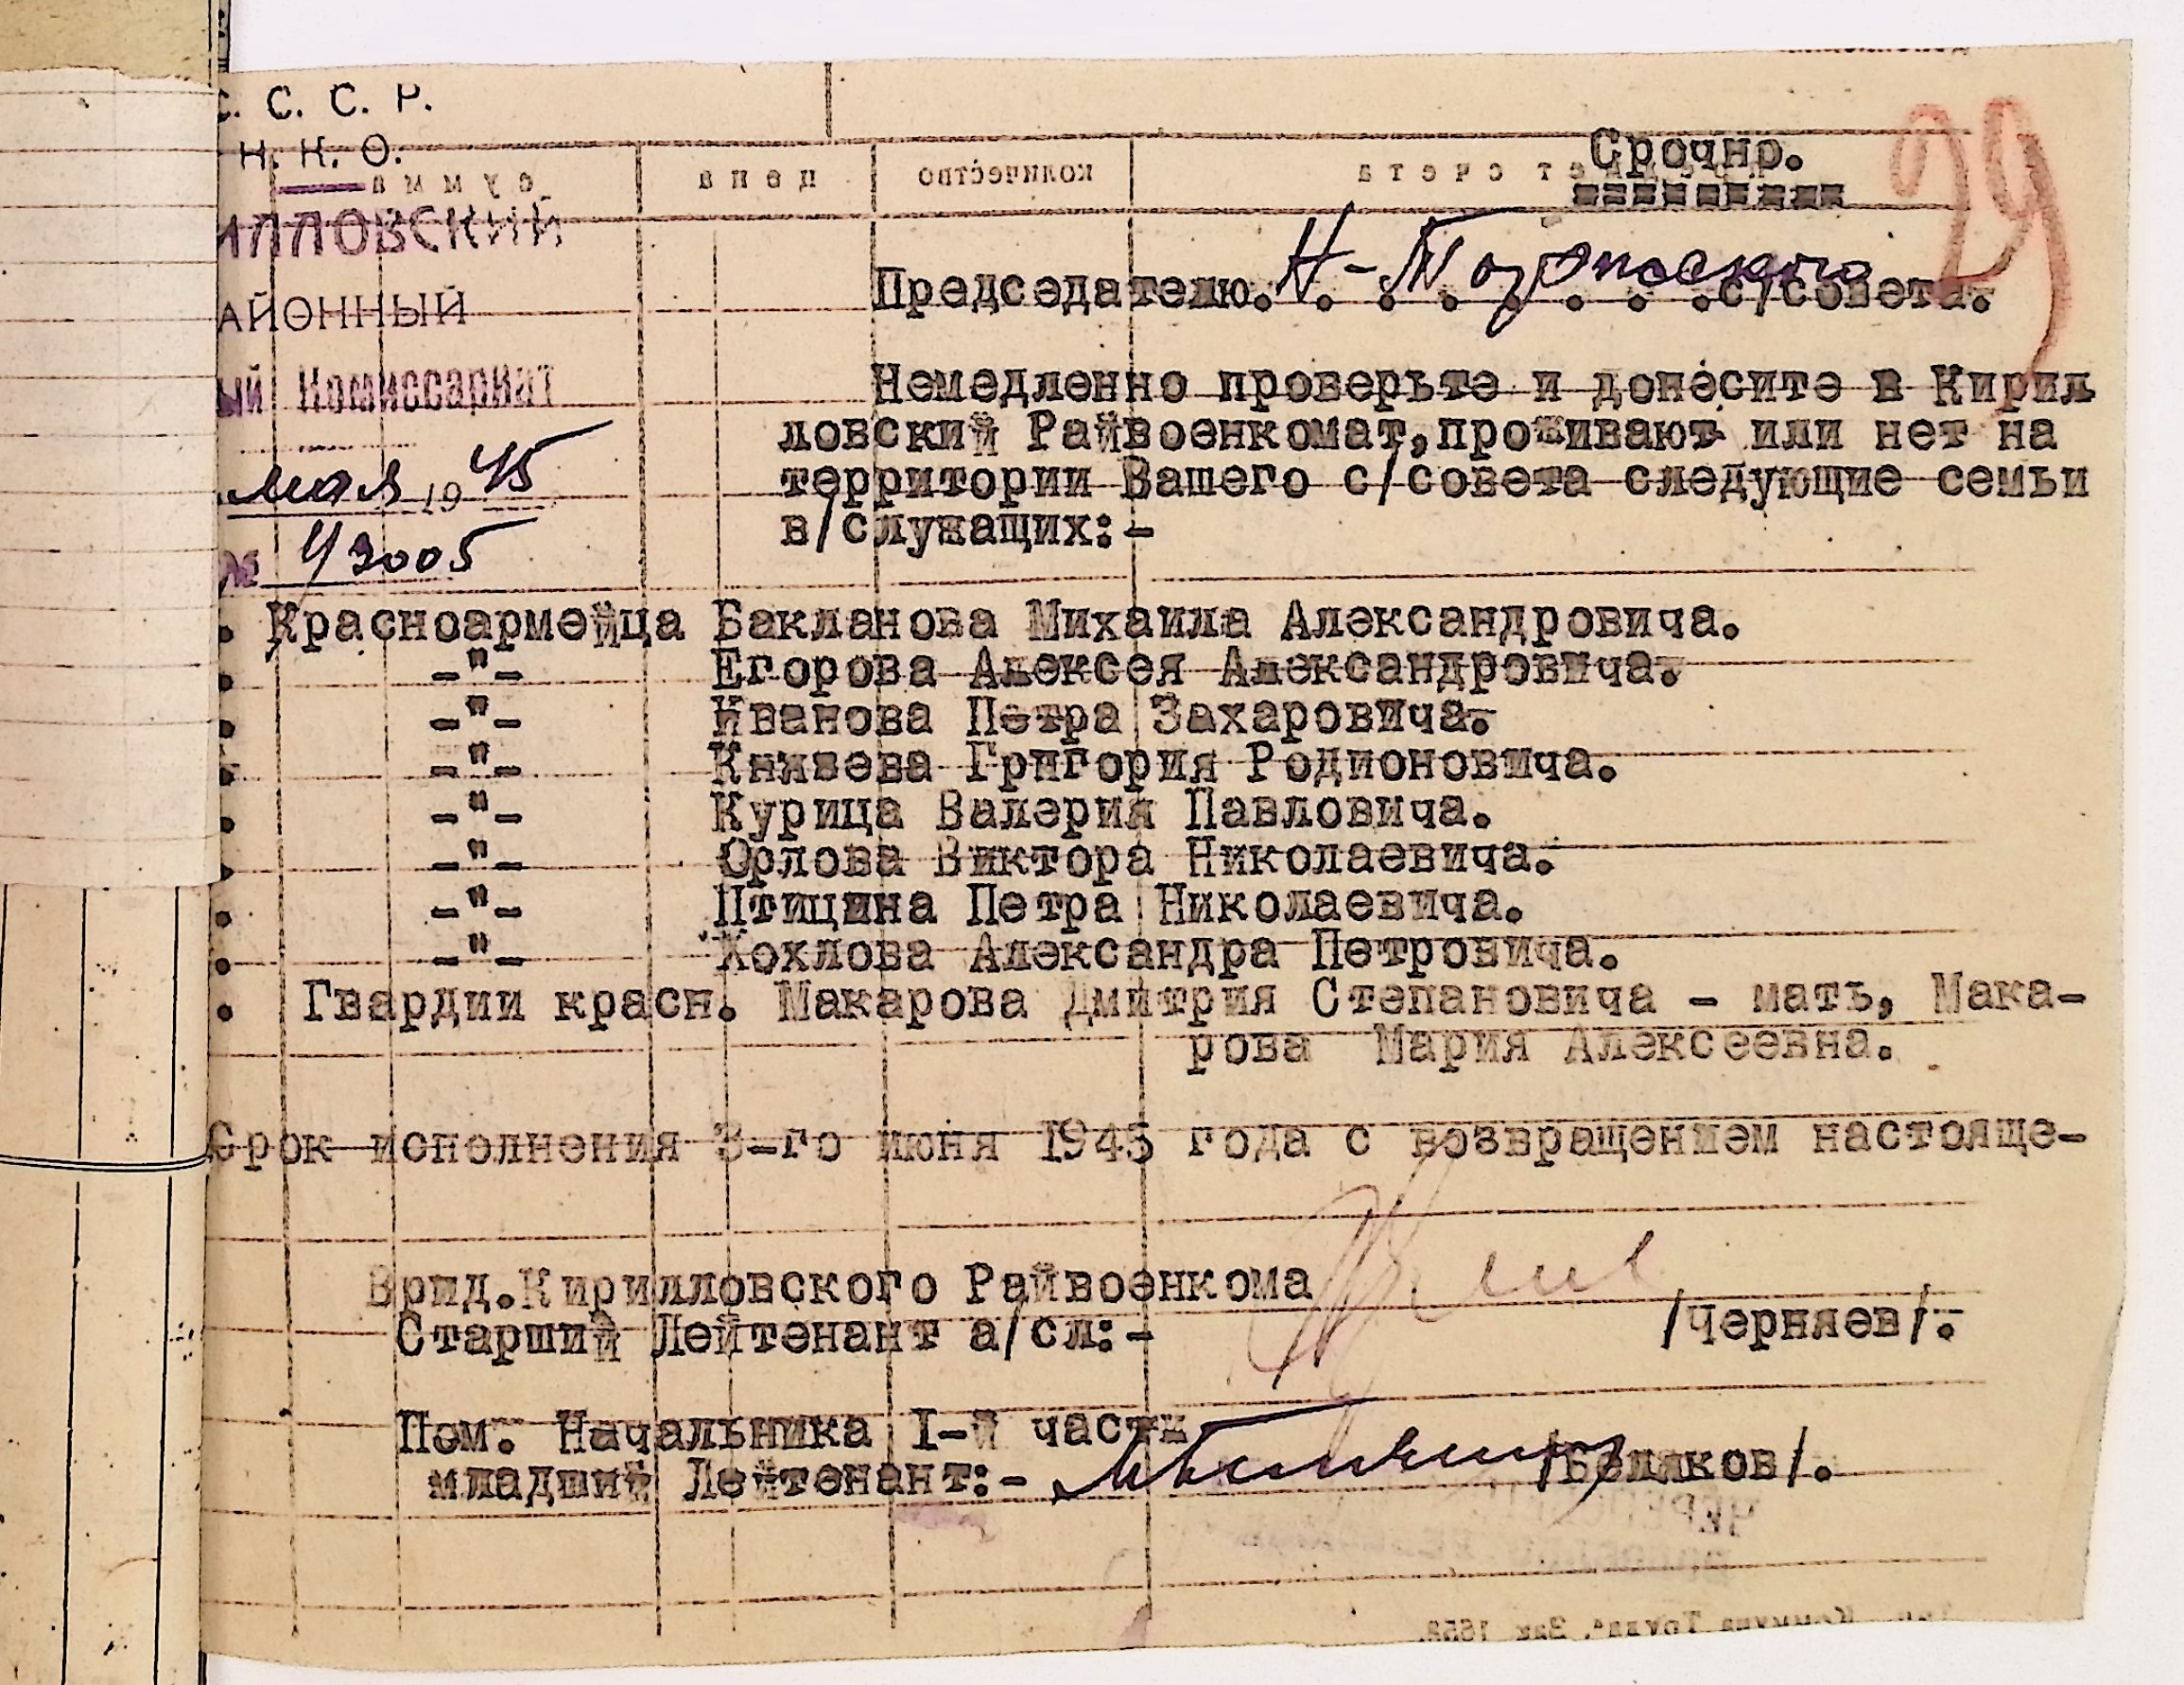 С. С. С. Р.
Н. К. О.
ИЛЛОВСКИЙ
АЙОННЫЙ
ый Комиссариат
мая 1945
№ 43005
29
Срочно.
сумма цена количество предмет счета
Председателю. Н- с/совета.
Немедленно проверьте и донесите в Кирил
ловский Райвоенкомат, проживают или нет на
территории Вашего с/совета следующие семьи
в/служащих:-
. Красноармейца Бакланова Михаила Александровича.
. -"- Егорова Алексея Александровича.
. -"- Иванова Петра Захаровича.
. -"- Князева Григория Родионовича.
. -"- Курица Валерия Павловича.
. -"- Орлова Виктора Николаевича.
. -"- Птицина Петра Николаевича.
. -"- Хохлова Александра Петровича.
. Гвардии красн. Макарова Дмитрия Степановича - мать, Мака-
рова Мария Алексеевна.
Срок исполнения 3-го июня 1945 года с возвращением настояще-
Врид.Кирилловского Райвоенкома
Старший Лейтенант а/сл:- /Черняев/.-
Пом. Начальника I-й части
младший Лейтенант:- /Беляков/.